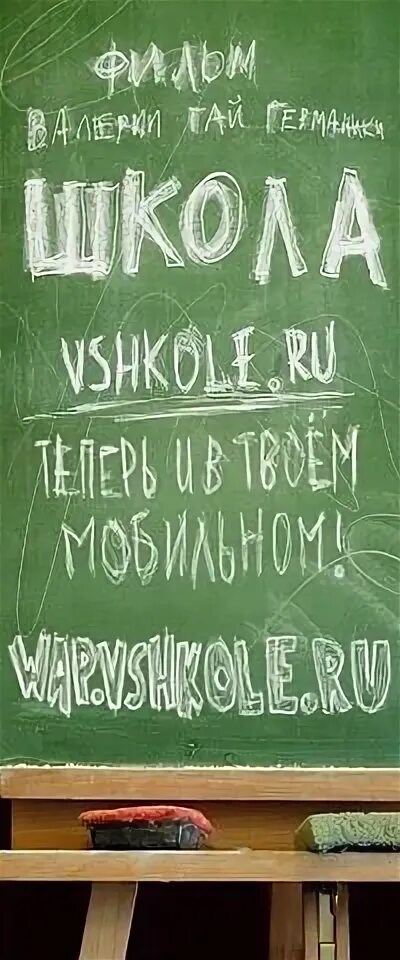 ФИЛЬМ
ВАЛЕРИИ ГАЙ ГЕРМАНИКИ
ШКОЛА
VSHKOLE.RU
ТЕПЕРЬ И В ТВОЁМ
МОБИЛЬНОМ!
WAP.VSHKOLE.RU